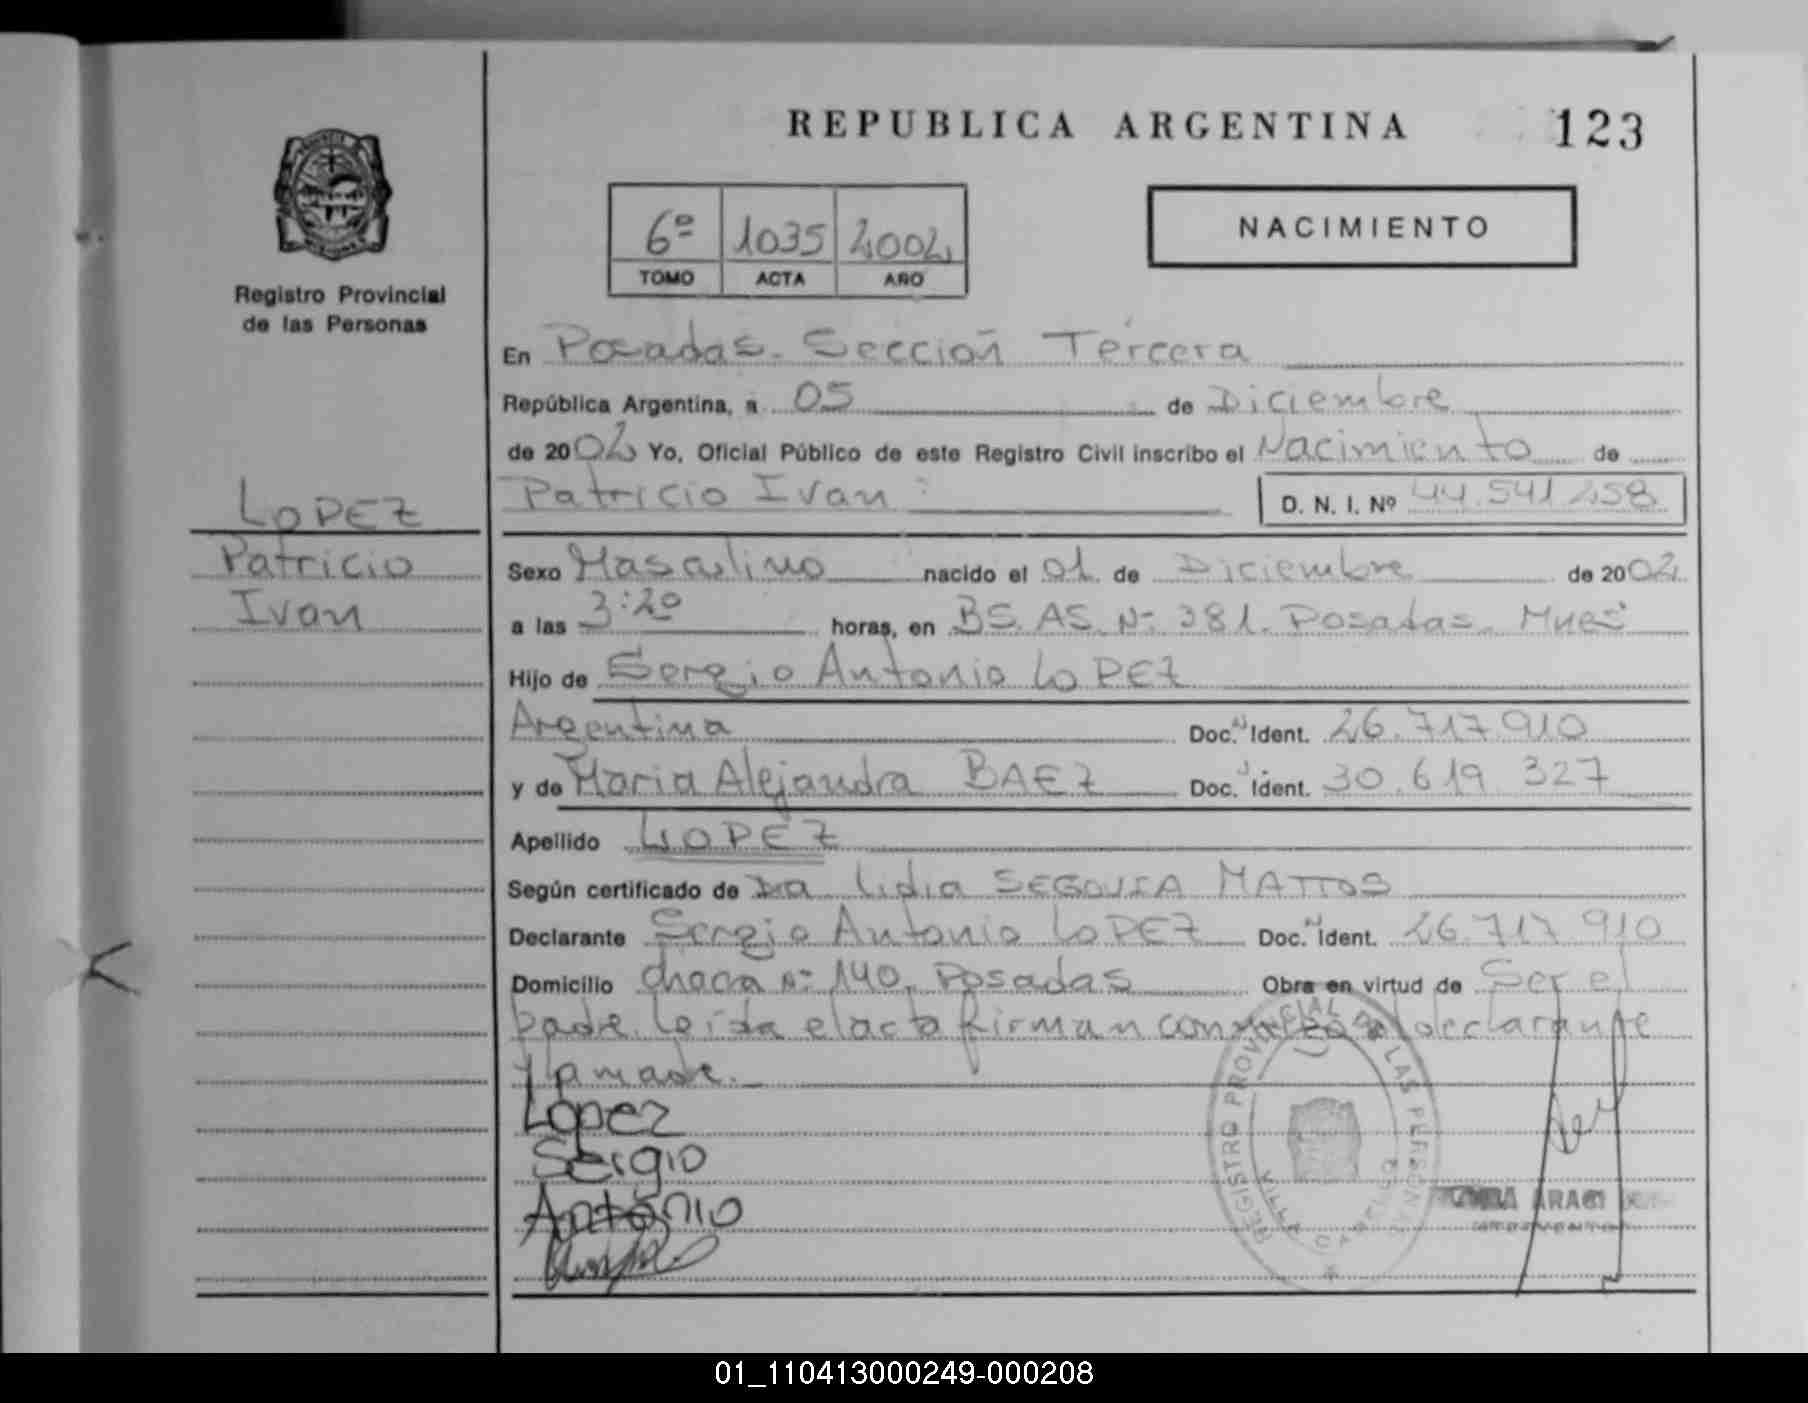 REPUBLICA ARGENTINA 123
Registro Provincial
de las Personas
6º 1035 2002
TOMO ACTA AÑO
NACIMIENTO
LOPEZ
Patricio
Ivan
En Posadas. Sección Tercera
República Argentina, a 05 de Diciembre
de 2002 Yo, Oficial Público de este Registro Civil inscribo el Nacimiento de
Patricio Ivan D. N. I. Nº 44.541.258
Sexo Masculino nacido el 01 de Diciembre de 2002
a las 3:20 horas, en BS. AS. Nº 381. Posadas.
Hijo de Sergio Antonio LOPEZ
Argentina Doc. Ident. 26.717.910
y de Maria Alejandra BAEZ Doc. Ident. 30.619.327
Apellido LOPEZ
Según certificado de Dra Lidia SEGOVIA MATTOS
Declarante Sergio Antonio LOPEZ Doc. Ident. 26.717.910
Domicilio chacra Nº 140. Posadas Obra en virtud de Ser el
padre. leída el acta firman conmigo declarante
y la madre.
Lopez
Sergio
Antonio
REGISTRO PROVINCIAL DE LAS PERSONAS
VILLA CABELLO
ARACI
01_110413000249-000208